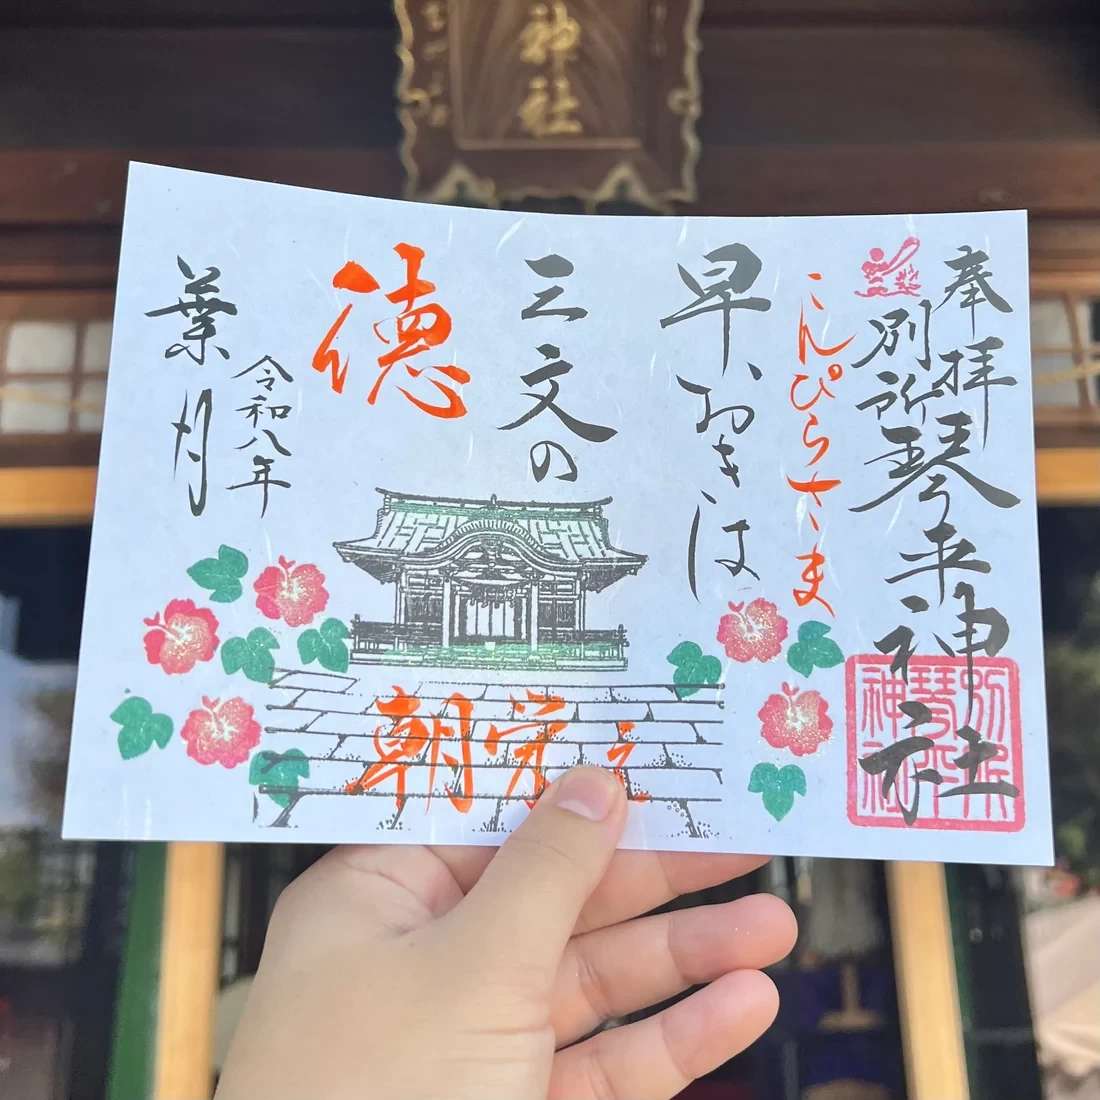 神社
奉拝
別所琴平神社
こんぴらさま
早おきは
三文の
徳
令和八年
葉月
別所
琴平
神社